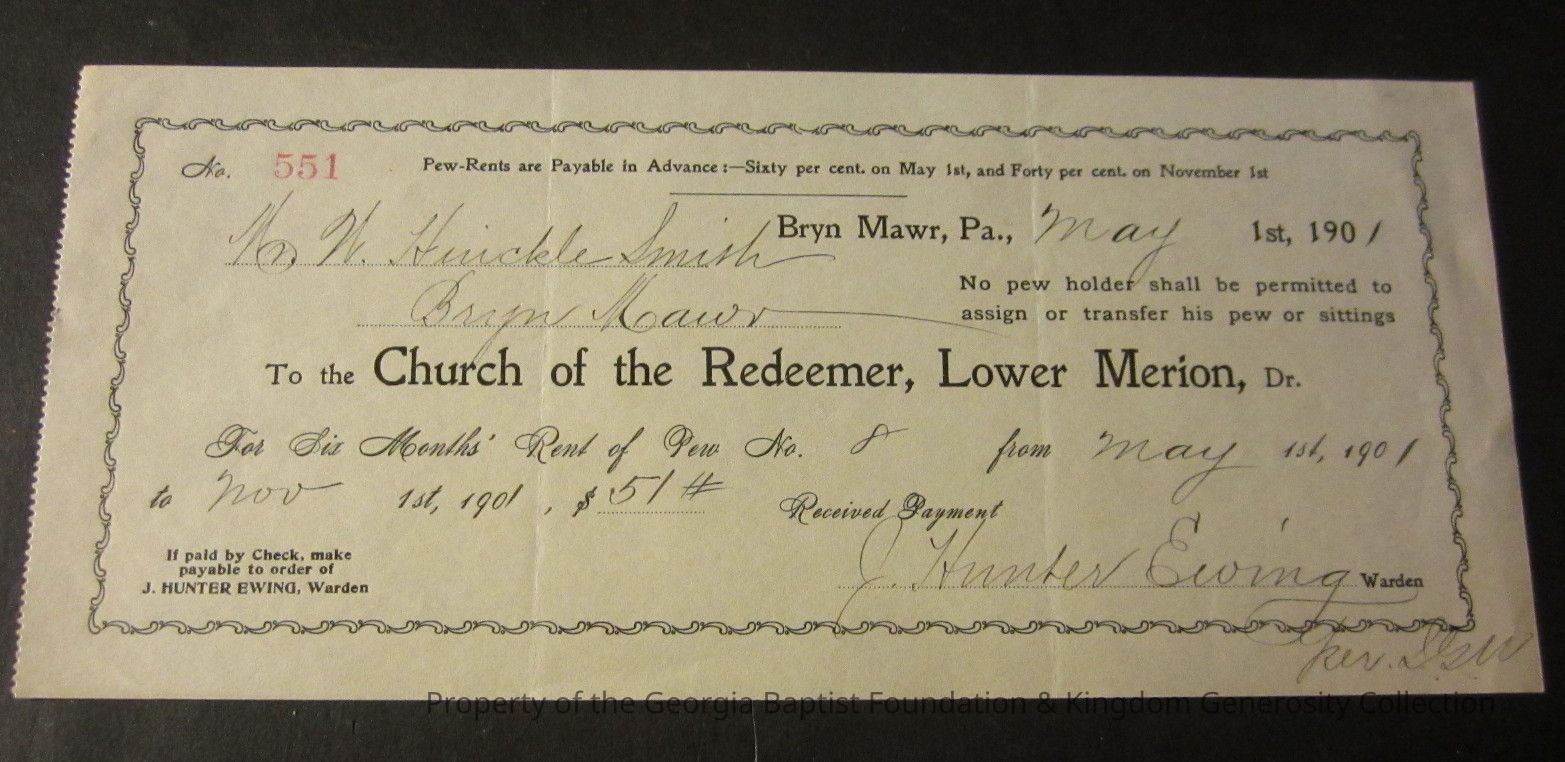 No. 551 Pew-Rents are Payable in Advance:—Sixty per cent. on May 1st, and Forty per cent. on November 1st
Bryn Mawr, Pa., May 1st, 1901
Mr. W. Hinckle Smith
Bryn Mawr
No pew holder shall be permitted to
assign or transfer his pew or sittings
To the Church of the Redeemer, Lower Merion, Dr.
For Six Months' Rent of Pew No. 8 from May 1st, 1901
to Nov 1st, 1901, $ 51
Received Payment
If paid by Check, make
payable to order of
J. HUNTER EWING, Warden
J. Hunter Ewing Warden
per.
Property of the Georgia Baptist Foundation & Kingdom Generosity Collection